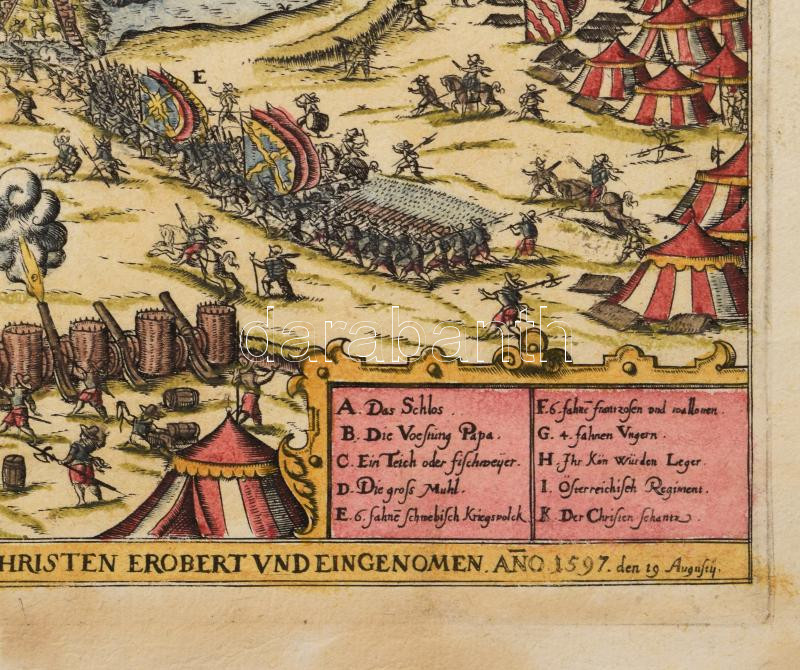 E
darabanth
A. Das Schlos.
B. Die Voestung Papa.
C. Ein Teich oder fischweyer.
D. Die gross Muhl.
E. 6. fahnē schwebisch Kriegsvolck
F. 6. fahnē frantzosen vnd wallonen.
G. 4. fahnen Vngern.
H. Ihr Kön Würden Leger.
I. Österreichisch Regiment.
K. Der Christen schantz
HRISTEN EROBERT VND EINGENOMEN. AÑO. 1597. den 19 Augustij.